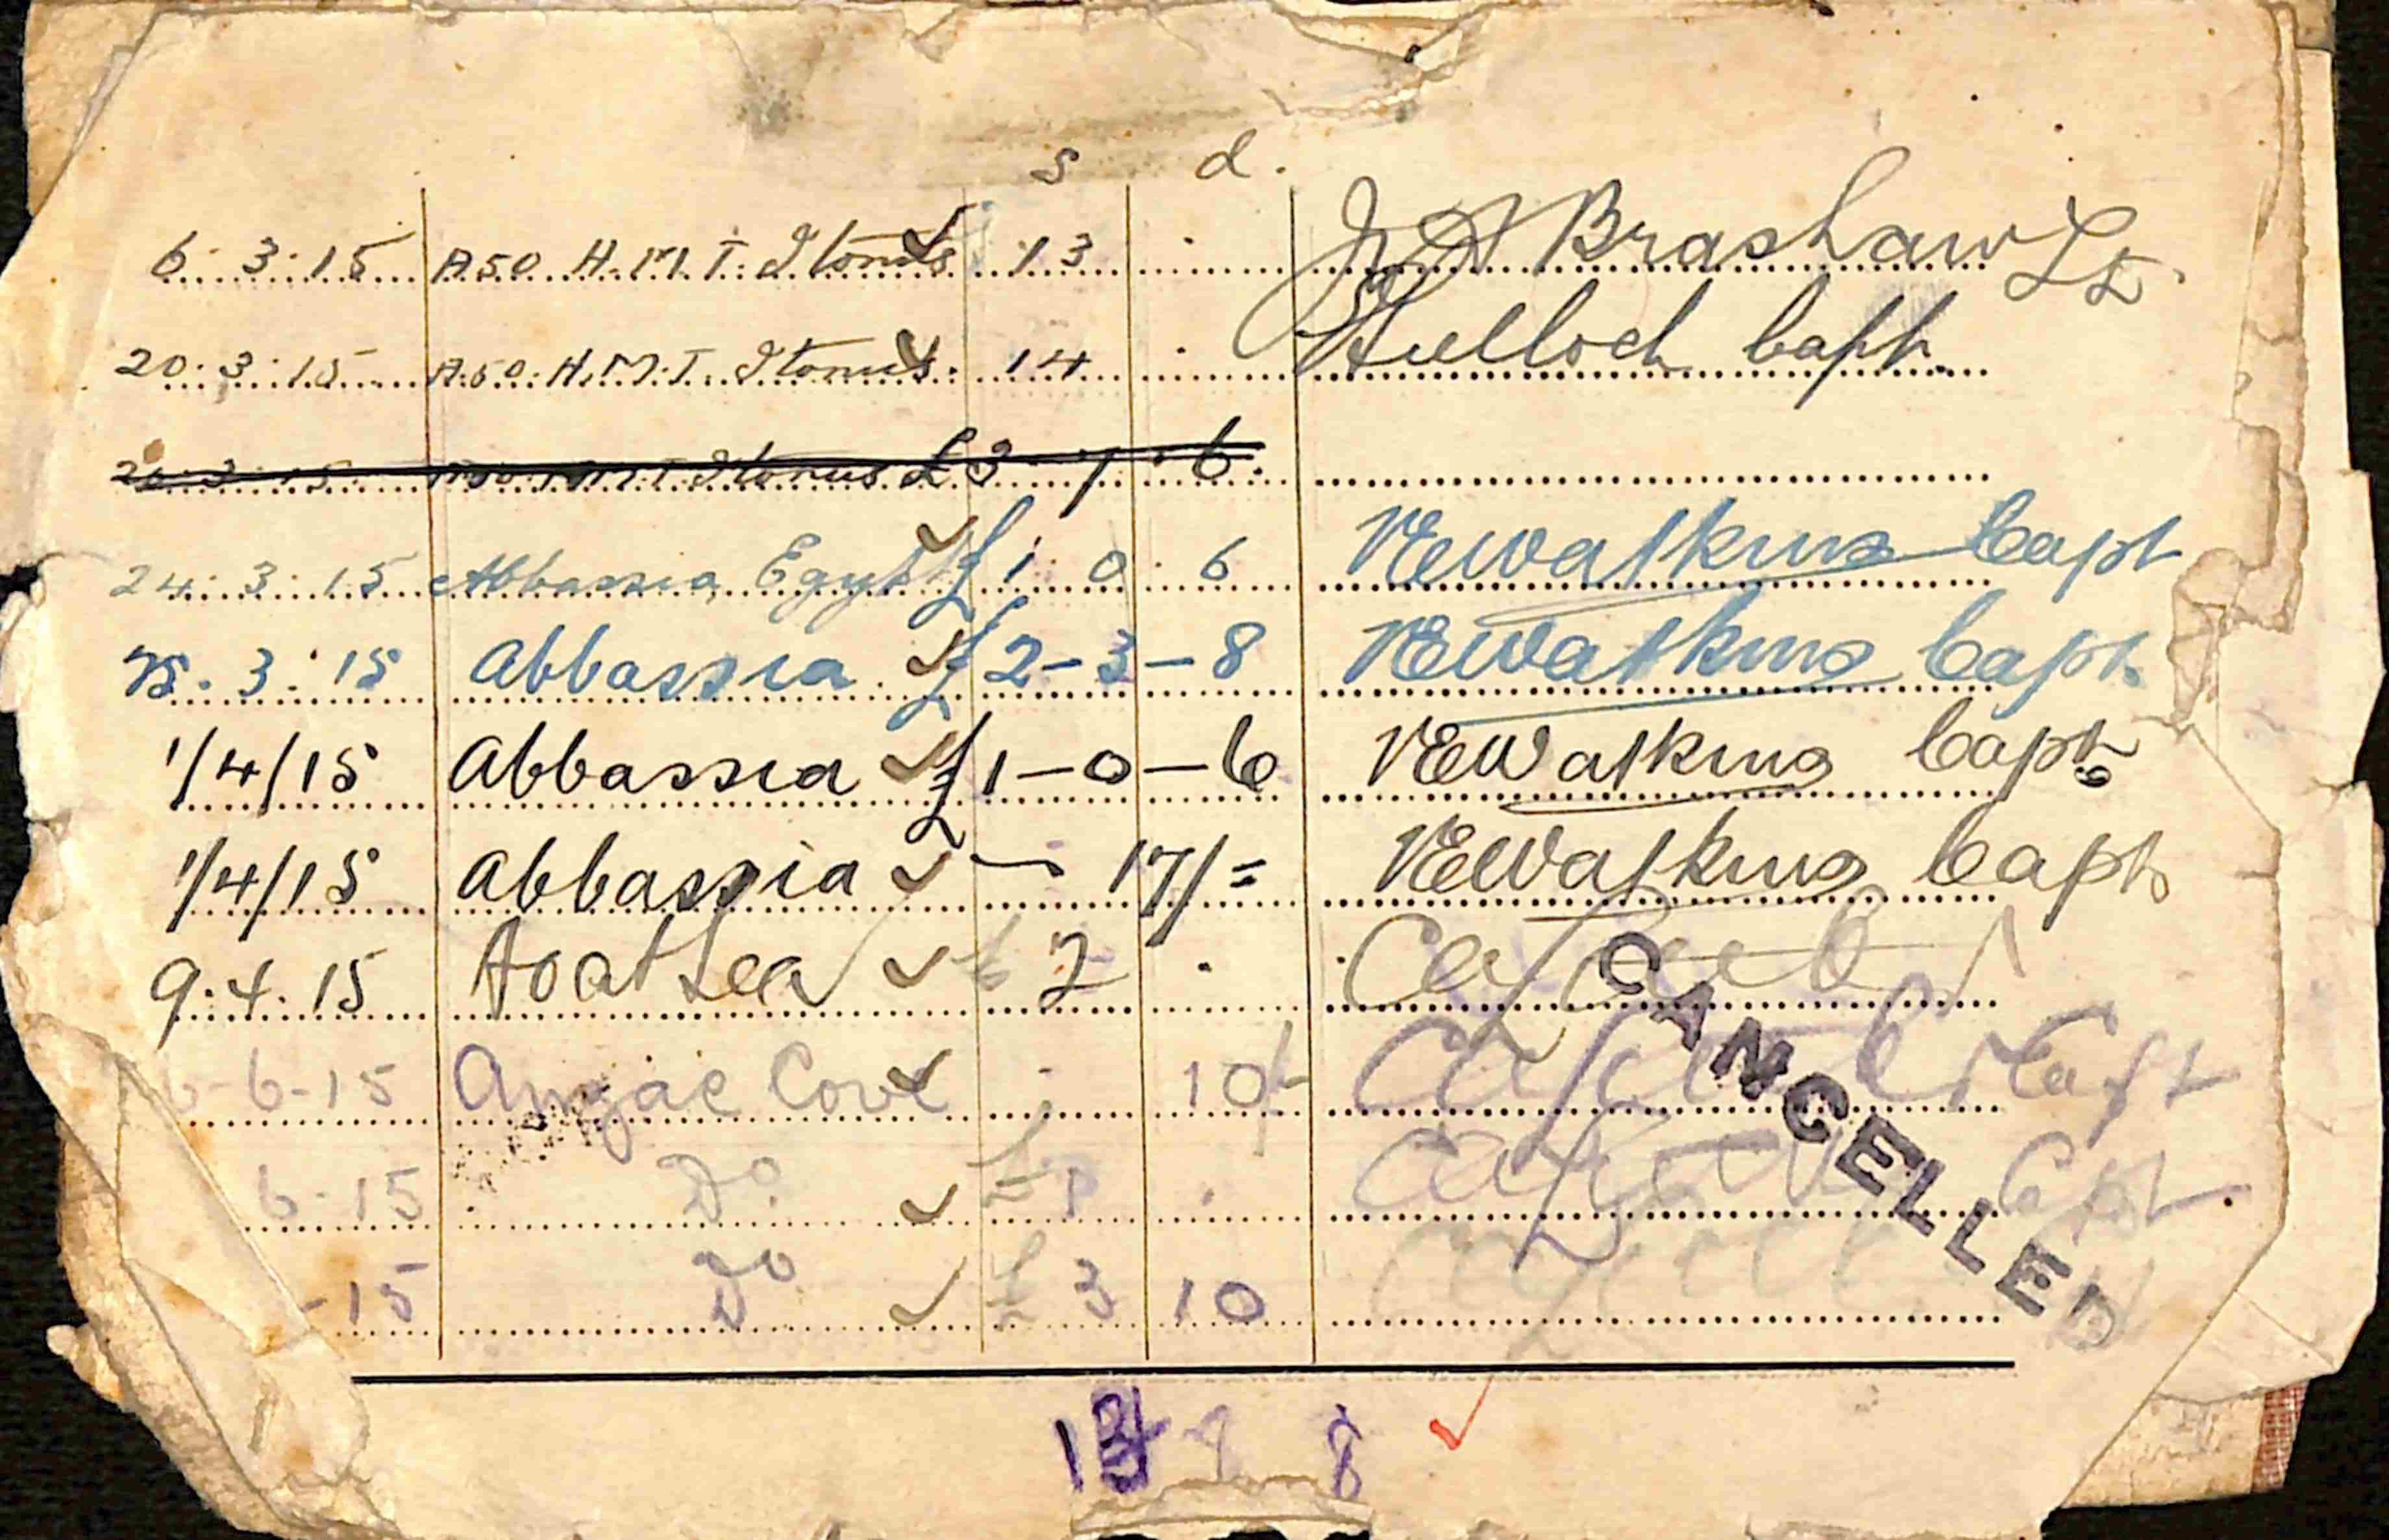 s d.
6.3.15 A.50. H.M.T. Itonus 13 . Brashaw Lt.
20.3.15 A.50. H.M.T. Itonus. 14 . Capt.
Itonus £3 7 . 6.
24.3.15 Abbassia Egypt £1 0 6 VEWatkins Capt
25.3.15 Abbassia £2-3-8 VEWatkins Capt.
1/4/15 Abbassia £1-0-6 VEWatkins Capt
1/4/15 Abbassia - 17/= VEWatkins Capt
9.4.15 At Sea £2 .
6-15 Anzac Cove - 10/- Capt
6-15 Do £ . Capt.
-15 Do £3 10
CANCELLED
8